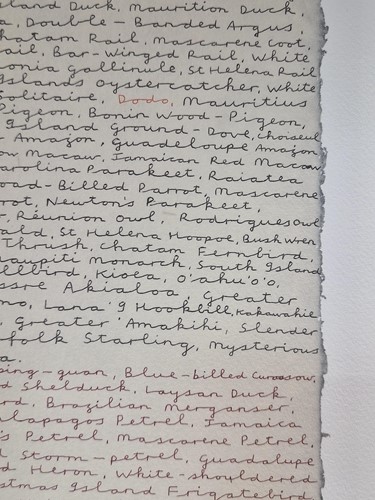 Island Duck, Maurition Duck,
Double-Banded Argus,
Chatam Rail, Mascarene Coot,
Rail, Bar-Winged Rail, White
Gallinule, St Helena Rail
Islands Oystercatcher, White
Solitaire, Dodo, Mauritius
Pigeon, Bonin Wood-Pigeon,
Island Ground-Dove, Choiseul
Amazon, Guadeloupe Amazon
Macaw, Jamaican Red Macaw
Carolina Parakeet, Raiatea
Broad-Billed Parrot, Mascarene
Parrot, Newton's Parakeet,
Réunion Owl, Rodrigues owl
St Helena Hoopoe, Bush Wren
Thrush, Chatam Fernbird,
Maupiti Monarch, South Island
Kioea, O'ahu 'O'o,
Akialoa, Greater
Lana'i Hookbill, Kakawahie
Greater 'Amakihi, Slender
Norfolk Starling, Mysterious
a.
Piping-guan, Blue-billed Curassow,
Shelduck, Laysan Duck,
Brazilian Merganser,
Galapagos Petrel, Jamaica
's Petrel, Mascarene Petrel,
Storm-petrel, Guadalupe
Heron, White-shouldered
Christmas Island Frigatebird